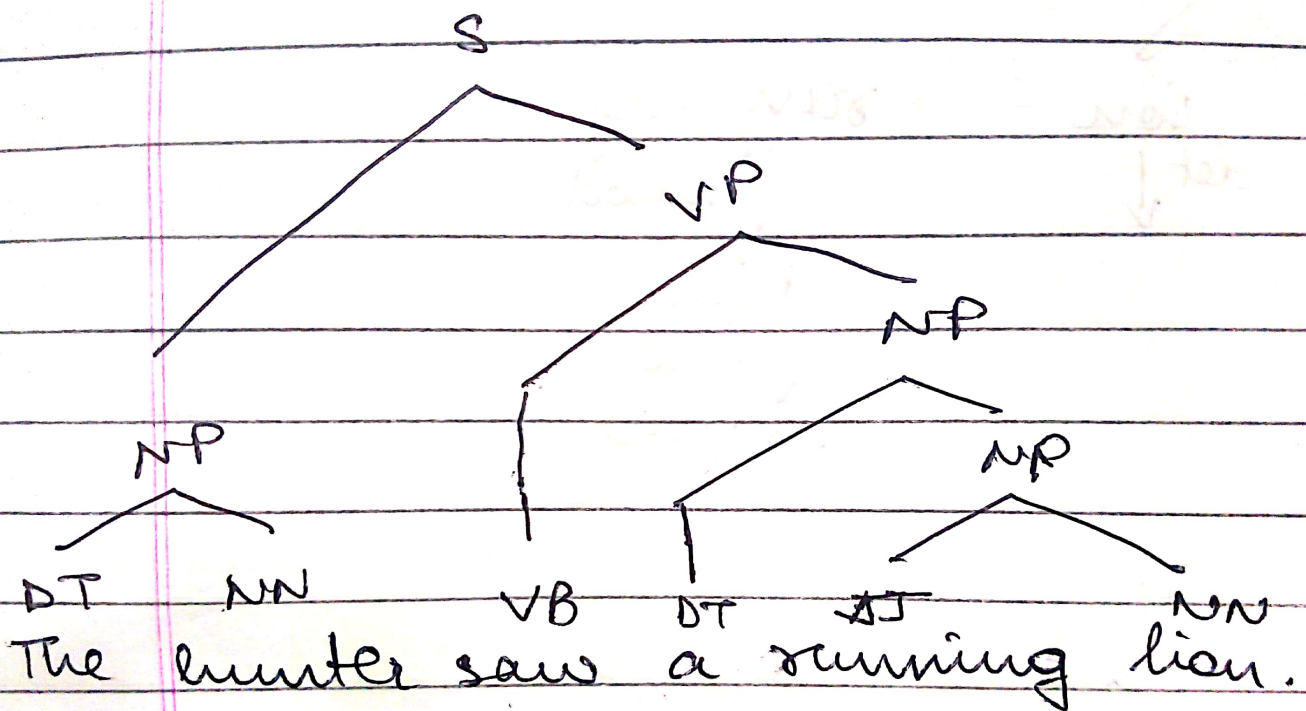 S
VP
NP
NP NP
DT NN VB DT AJ NN
The hunter saw a running lion.